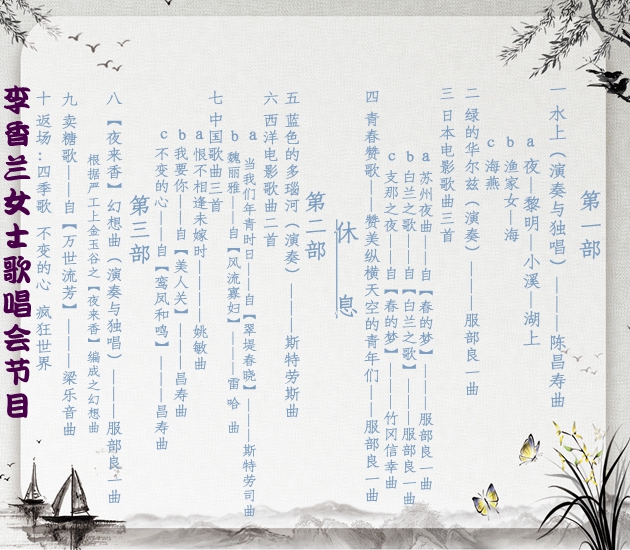 李香兰女士歌唱会节目
第一部
一 水上（演奏与独唱）————陈昌寿曲
a 夜—黎明—小溪—湖上
b 渔家女—海
c 海燕
二 绿的华尔兹（演奏）————服部良一曲
三 日本电影歌曲三首
a 苏州夜曲——自【春的梦】———服部良一曲
b 白兰之歌——自【白兰之歌】———服部良一曲
c 支那之夜——自【春的梦】———竹冈信幸曲
四 青春赞歌——赞美纵横天空的青年们——服部良一曲
休息
第二部
五 蓝色的多瑙河（演奏）————斯特劳斯曲
六 西洋电影歌曲二首
a 当我们年青时日——自【翠堤春晓】————斯特劳司曲
b 魏丽雅——自【风流寡妇】———雷哈曲
七 中国歌曲三首
a 恨不相逢未嫁时————姚敏曲
b 我要你——自【美人关】———昌寿曲
c 不变的心——自【鸾凤和鸣】———昌寿曲
第三部
八 【夜来香】幻想曲（演奏与独唱）———服部良一曲
根据严工上金玉谷之【夜来香】编成之幻想曲
九 卖糖歌——自【万世流芳】———梁乐音曲
十 返场：四季歌 不变的心 疯狂世界